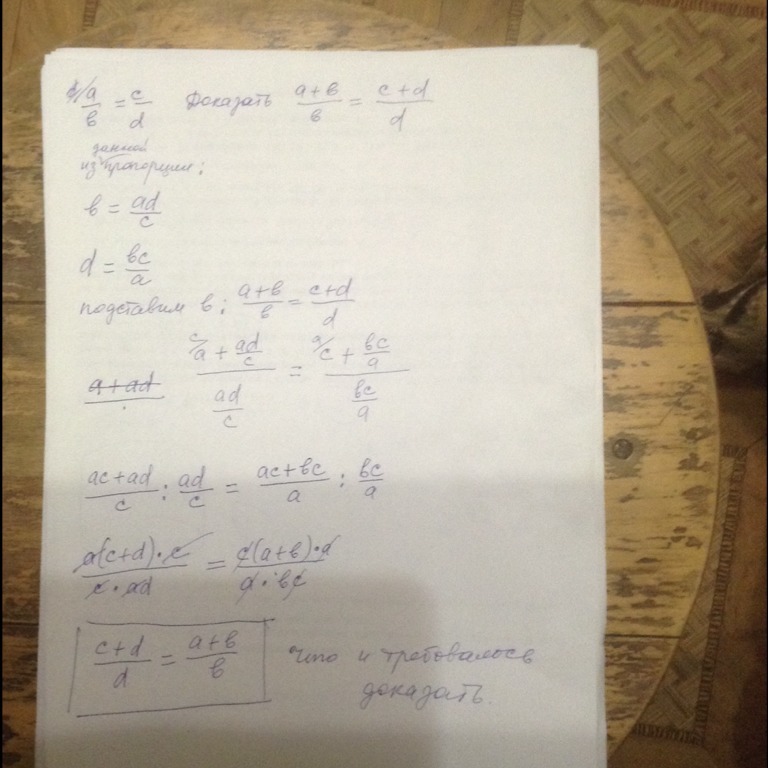 a/в = c/d Доказать (a+в)/в = (c+d)/d
данной
из пропорции:
в = ad/c
d = вc/a
подставим в: (a+в)/в = (c+d)/d
a+ad (a + ad/c)/(ad/c) = (c + вc/a)/(вc/a)
(ac+ad)/c : ad/c = (ac+вc)/a : вc/a
(a(c+d)·c)/(c·ad) = (c(a+в)·a)/(a·вc)
(c+d)/d = (a+в)/в что и требовалось
доказать.